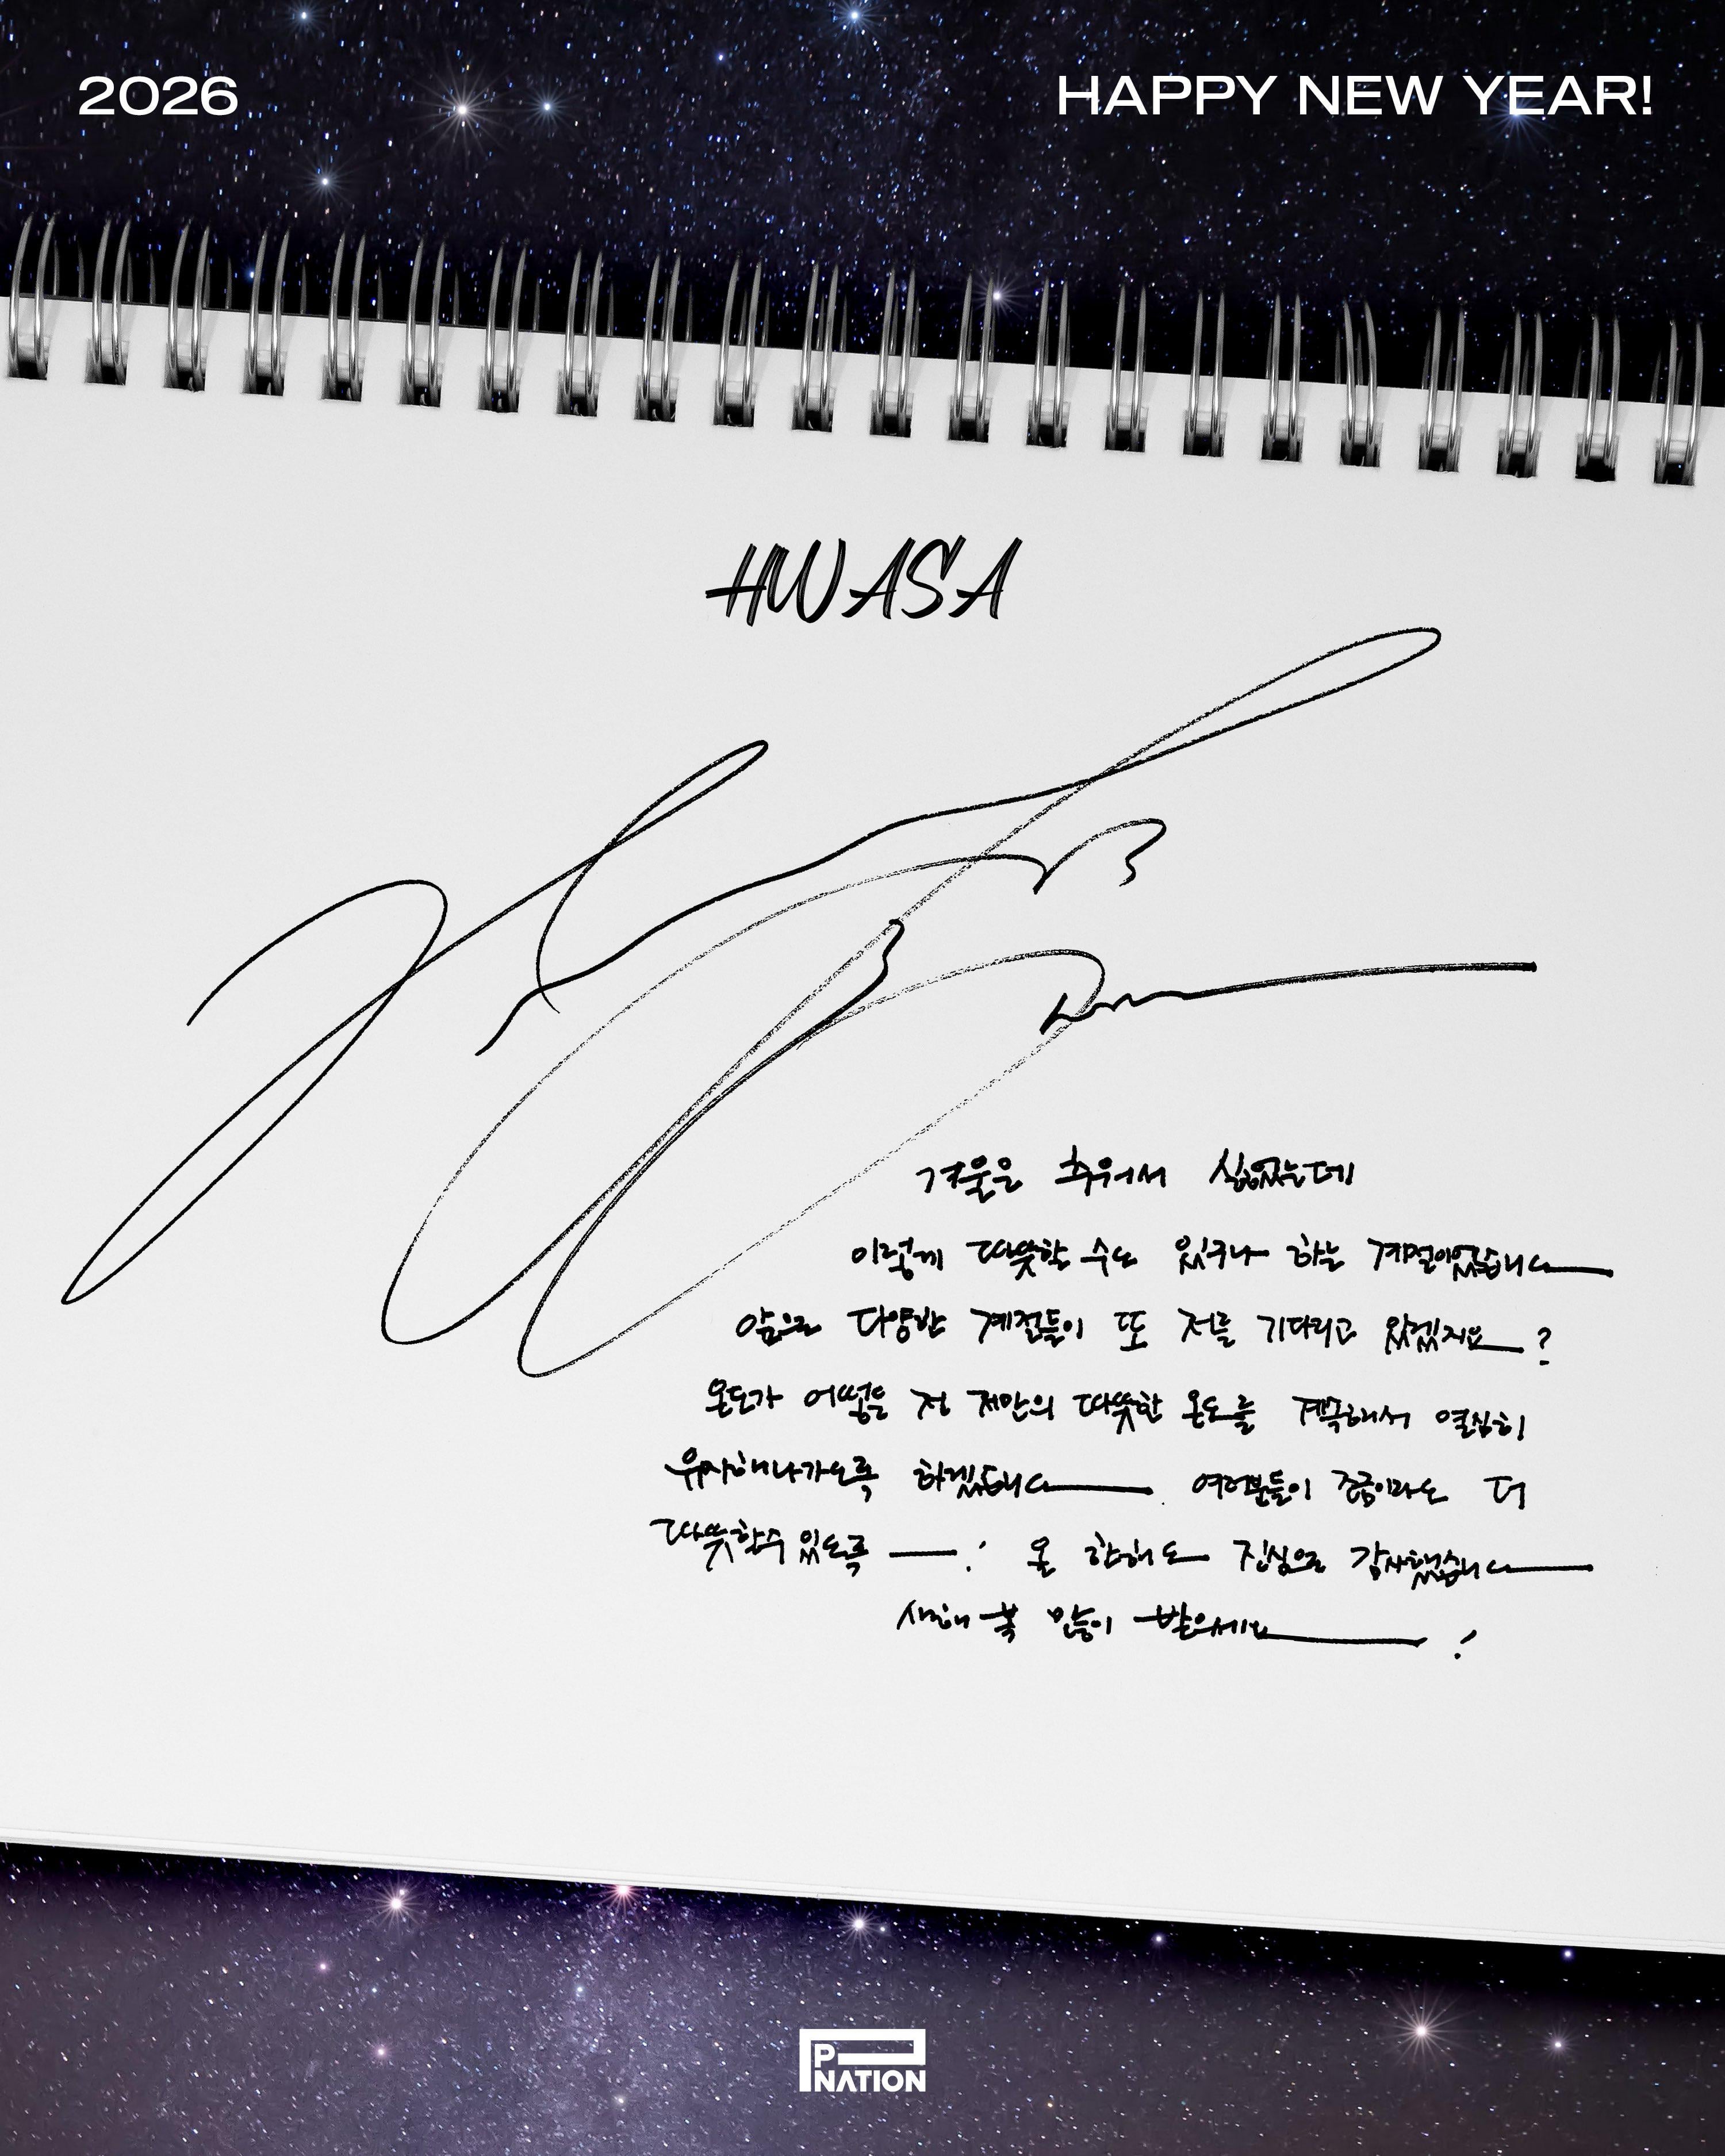 2026 HAPPY NEW YEAR!
HWASA
겨울은 추워서 싫었는데
이렇게 따뜻할 수도 있구나 하는 계절이었습니다
앞으로 다양한 계절들이 또 저를 기다리고 있겠지요?
온도가 어떻든 전 저만의 따뜻한 온도를 계속해서 열심히
유지해나가도록 하겠습니다 여러분들이 조금이라도 더
따뜻할 수 있도록 —! 올 한해도 진심으로 감사했습니다
새해 복 많이 받으세요 !
P NATION